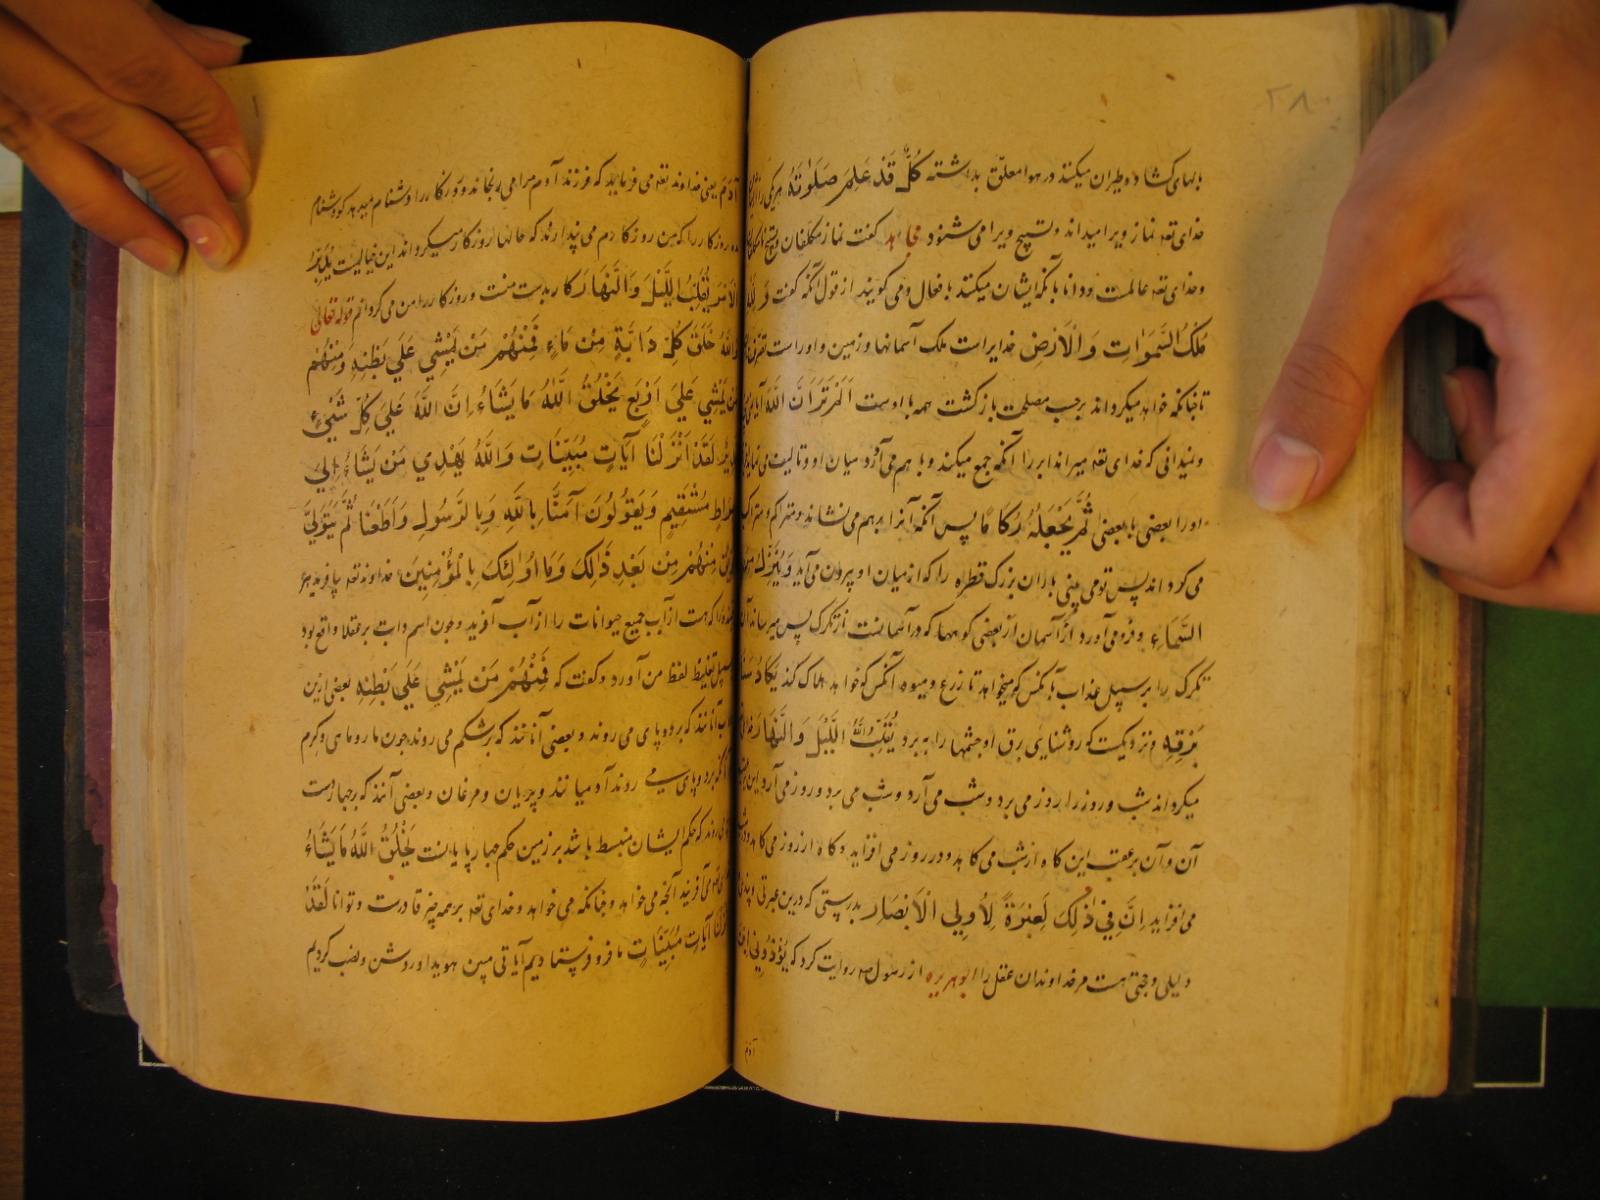 ۲۸۰
بالهای کشاده طیران میکنند در هوا معلق بداشته كُلٌّ قَدْ عَلِمَ صَلَوٰتَهُ هر یکی را
خدای تعه نماز ویرا میداند و تسبیح ویرا می شنود مجاهد کفت نماز مکلفان
و خدای تعه عالمست و دانا بآنکه ایشان میکنند بافعال و می کویند از قول آنکه کفت وَلِلَّهِ
مُلْكُ السَّمٰوَاتِ وَالْاَرْضِ خدایراست ملک آسمانها و زمین و اوراست
تا چنانکه خواهد میکرداند برحسب مصلحت بازکشت همه با اوست اَلَمْ تَرَ اَنَّ اللّٰهَ
و نیدانی که خدای تعه میراند ابر را آنکه جمع میکند و با هم می آرد میان او و تالیف می
اورا بعضی با بعضی ثُمَّ يَجْعَلُهُ رُكَامًا پس آنکه آنرا برهم می نشاند و متراکم
می کرداند پس تو می بینی باران بزرک قطره را که از میان او بیرون می آید وَيُنَزِّلُ مِنَ
السَّمَاءِ و فرو می آورد از آسمان از بعضی کوهها که در آسمانست از تکرک پس میرساند آن
تکرک را بر سبیل عذاب بآنکس که میخواهد تا زرع و میوه آنکس که خواهد هلاک کند يَكَادُ سَنَا
بَرْقِهٖ و نزدیکست که روشنایی برق او چشمها را ببرد يُقَلِّبُ اللّٰهُ الَّيْلَ وَالنَّهَارَ
میکرداند شب و روز را روز می برد و شب می آرد و شب می برد و روز می آرد این
آن و آن بر عقب این کاه از شب می کاهد و در روز می افزاید و کاه از روز می کاهد
می افزاید اِنَّ فِي ذٰلِكَ لَعِبْرَةً لِاُولِي الْاَبْصَارِ بدرستی که درین عبرتی و پندی
دلیلی و حجتی هست مر خداوندان عقل را ابوهریره از رسول صه روایت کرد که يُؤْذِينِي ابْنُ
آدم
آدَمَ یعنی خداوند تعه می فرماید که فرزند آدم مرا می رنجاند و روزکار را دشنام میدهد که دشنام
روزکار را که من روزکارم می پندارند که حالها روزکار میکرداند این خیالیست
الْاَمْرُ يُقَلِّبُ اللَّيْلَ وَالنَّهَارَ کار بدست منست و روزکار را من می کردانم قوله تعالی
وَاللّٰهُ خَلَقَ كُلَّ دَابَّةٍ مِنْ مَاءٍ فَمِنْهُمْ مَنْ يَمْشِي عَلَي بَطْنِهٖ وَمِنْهُمْ
مَنْ يَمْشِي عَلَيٰ اَرْبَعٍ يَخْلُقُ اللّٰهُ مَا يَشَاءُ اِنَّ اللّٰهَ عَلَيٰ كُلِّ شَيْءٍ
قَدِيرٌ لَقَدْ اَنْزَلْنَا آيَاتٍ مُبَيِّنَاتٍ وَاللّٰهُ يَهْدِي مَنْ يَشَاءُ اِلَيٰ
صِرَاطٍ مُسْتَقِيمٍ وَيَقُولُونَ آمَنَّا بِاللّٰهِ وَبِالرَّسُولِ وَاَطَعْنَا ثُمَّ يَتَوَلّٰي
فَرِيقٌ مِنْهُمْ مِنْ بَعْدِ ذٰلِكَ وَمَا اُولٰئِكَ بِالْمُؤْمِنِينَ خداوند تعه بیافرید هر
جنبنده را که هست از آب جمیع حیوانات را از آب آفرید و چون اسم دابت بر عقلا واقع بود
سبیل تغلیظ لفظ من آورد و کفت که فَمِنْهُمْ مَنْ يَمْشِي عَلَي بَطْنِهٖ بعضی ازین
آنانند که بر دو پای می روند و بعضی آنانند که بر شکم می روند چون مار و ماهی و کرم
آنکه بر دو پای می روند آدمیانند و پریان و مرغان و بعضی آنند که بر چهار دست
می روند که حکم ایشان منبسط باشد بر زمین حکم چهار پایانست يَخْلُقُ اللّٰهُ مَا يَشَاءُ
می آفریند آنچه می خواهد و چنانکه می خواهد و خدای تعه بر همه چیز قادرست و توانا لَقَدْ
اَنْزَلْنَا آيَاتٍ مُبَيِّنَاتٍ ما فرو فرستادیم آیاتی مبین هویدا و روشن و نصب کردیم